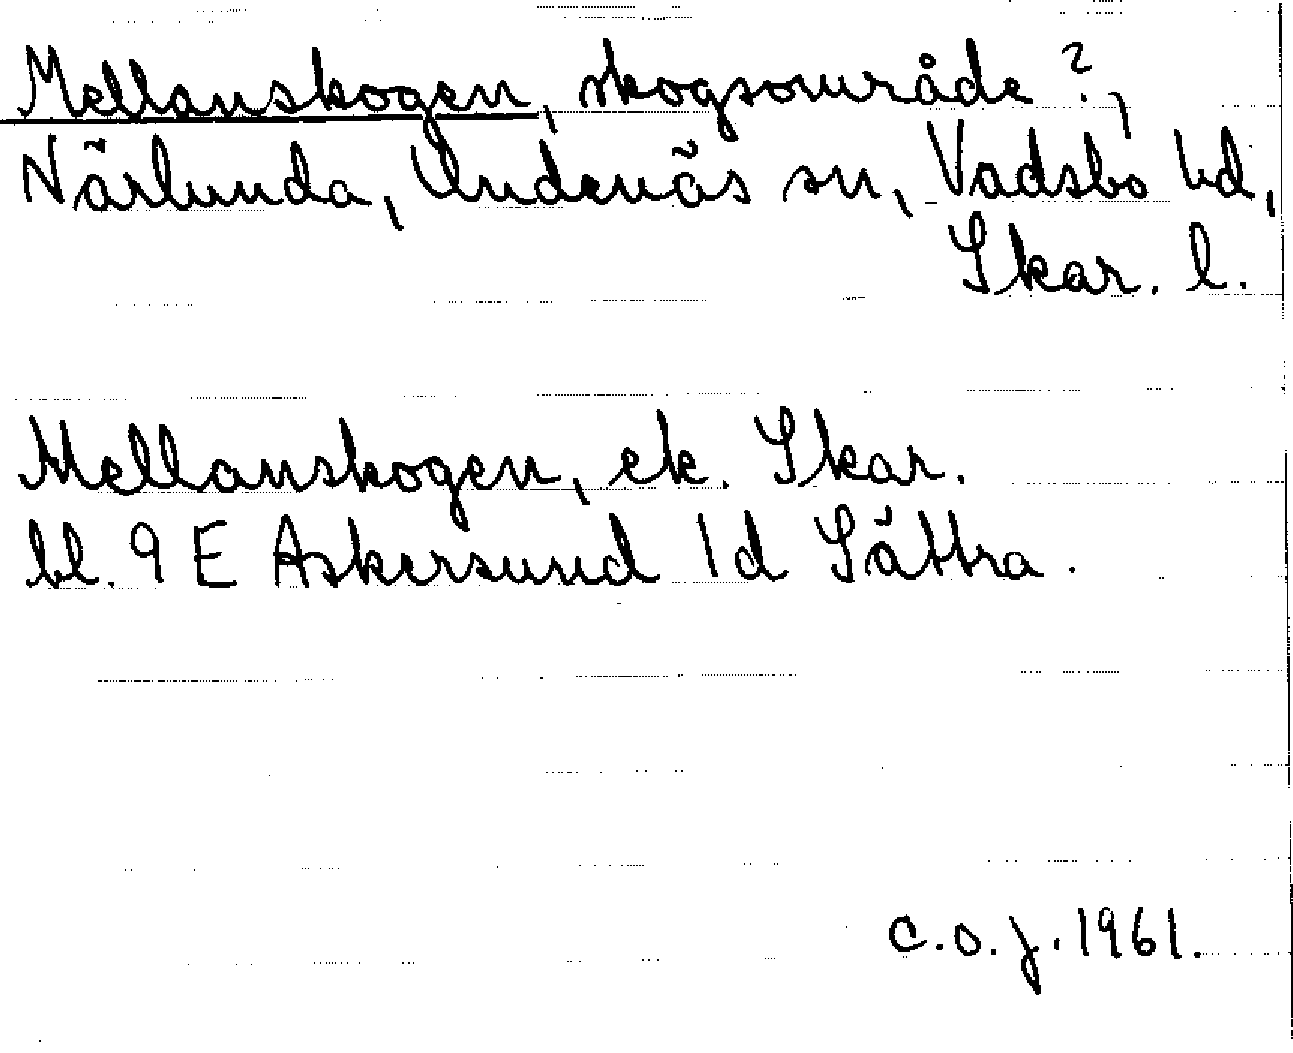 Mellanskogen, skogsområde?,
Närlunda, Undenäs sn, Vadsbo hd,
Skar. l.
Mellanskogen, ek. Skar.
bl. 9 E Askersund 1d Sätra.
C.O.J. 1961.